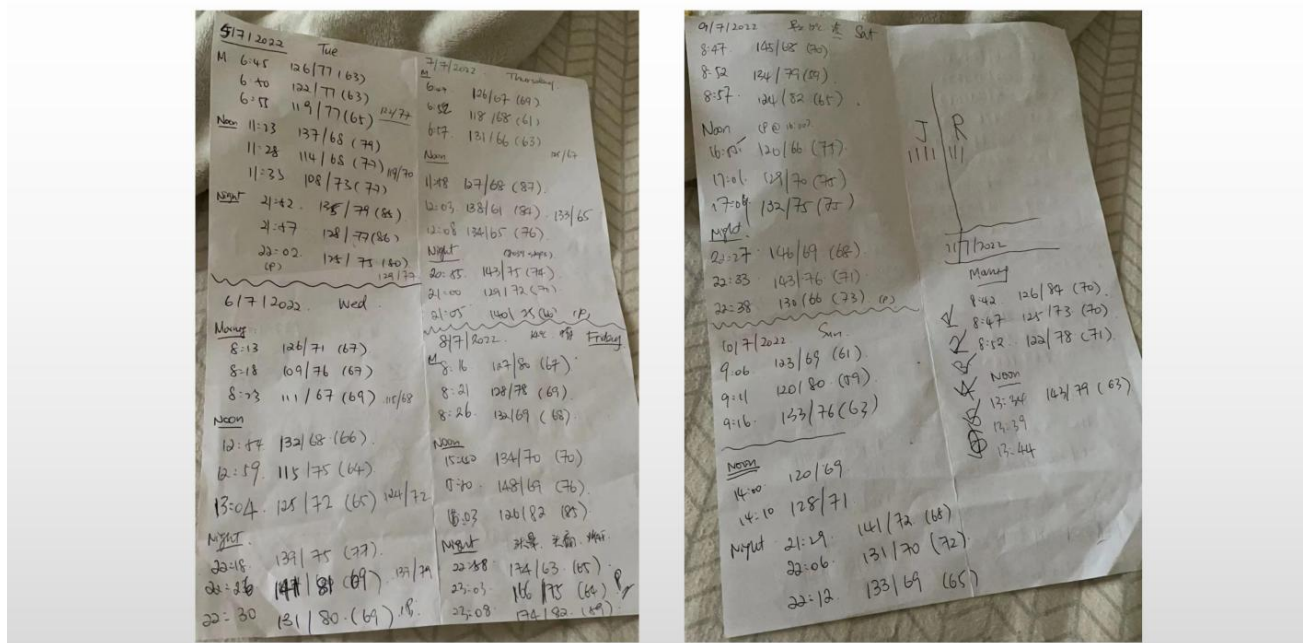 5/7/2022 Tue
M 6:45 126/77 (63)
6:50 122/77 (63)
6:55 119/77 (65) 122/77
Noon 11:23 137/68 (79)
11:28 114/68 (72) 119/70
11:33 108/73 (72)
Night 21:52 135/79 (85)
21:57 128/77 (86)
22:02 125/75 (80)
(P) 129/77
6/7/2022 Wed
Morning
8:13 126/71 (67)
8:18 109/76 (67)
8:23 111/67 (69) 115/68
Noon
12:54 132/68 (66)
12:59 115/75 (64)
13:04 125/72 (65) 124/72
Night
22:18 139/75 (77)
22:26 141/81 (69) 137/79
22:30 131/80 (69) P
7/7/2022 Thursday
M
126/67 (69)
6:52 118/68 (61)
6:57 131/66 (63)
Noon 125/67
11:58 127/68 (87)
12:03 138/61 (84) 133/65
12:08 134/65 (76)
Night
20:55 143/75 (74)
21:00 129/72
21:05 140/75 (P)
8/7/2022 Friday
M 8:16 127/80 (67)
8:21 128/78 (69)
8:26 132/69 (68)
Noon
15:50 134/70 (70)
148/69 (76)
16:03 126/82 (85)
Night
22:58 174/63 (65)
23:03 166/75 (64) P
23:08 174/82
9/7/2022 Sat
8:47 145/68 (70)
8:52 134/79 (59)
8:57 124/82 (65)
Noon
120/66
17:01 129/70 (75)
17:06 132/75 (75)
Night
22:27 146/69 (68)
22:33 143/76 (71)
22:38 130/66 (73) (P)
10/7/2022 Sun
9:06 123/69 (61)
9:11 120/80 (59)
9:16 133/76 (63)
Noon
14:00 120/69
14:10 128/71
Night 21:29 141/72 (68)
22:06 131/70 (72)
22:12 133/69 (65)
J R
11/7/2022
8:42 126/84 (70)
8:47 125/73 (70)
8:52 122/78 (71)
Noon
13:34 143/79 (63)
13:39
13:44